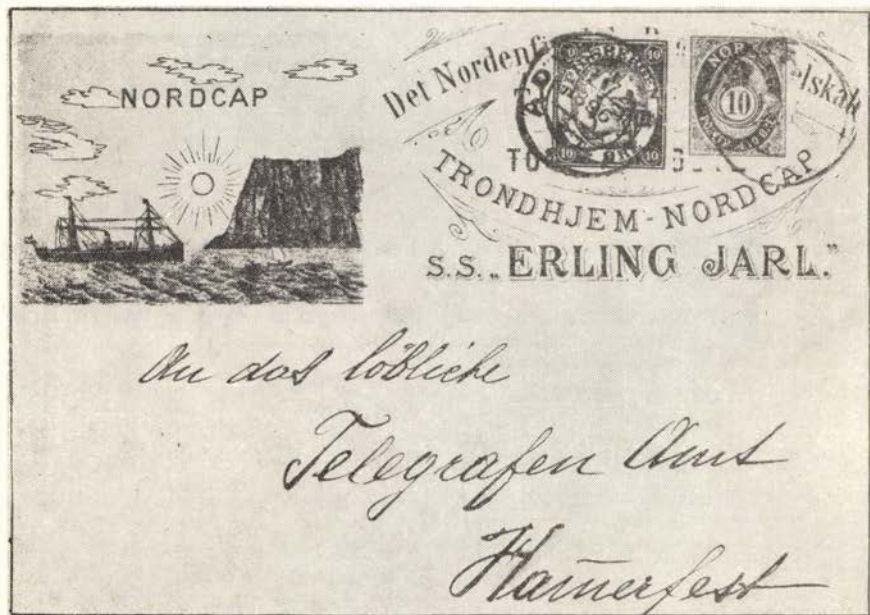 NORDCAP
Det
10 10
10 10
10
TRONDHJEM-NORDCAP
S.S. „ERLING JARL.”
An das löbliche
Telegrafen Amt
Ham̄erfest